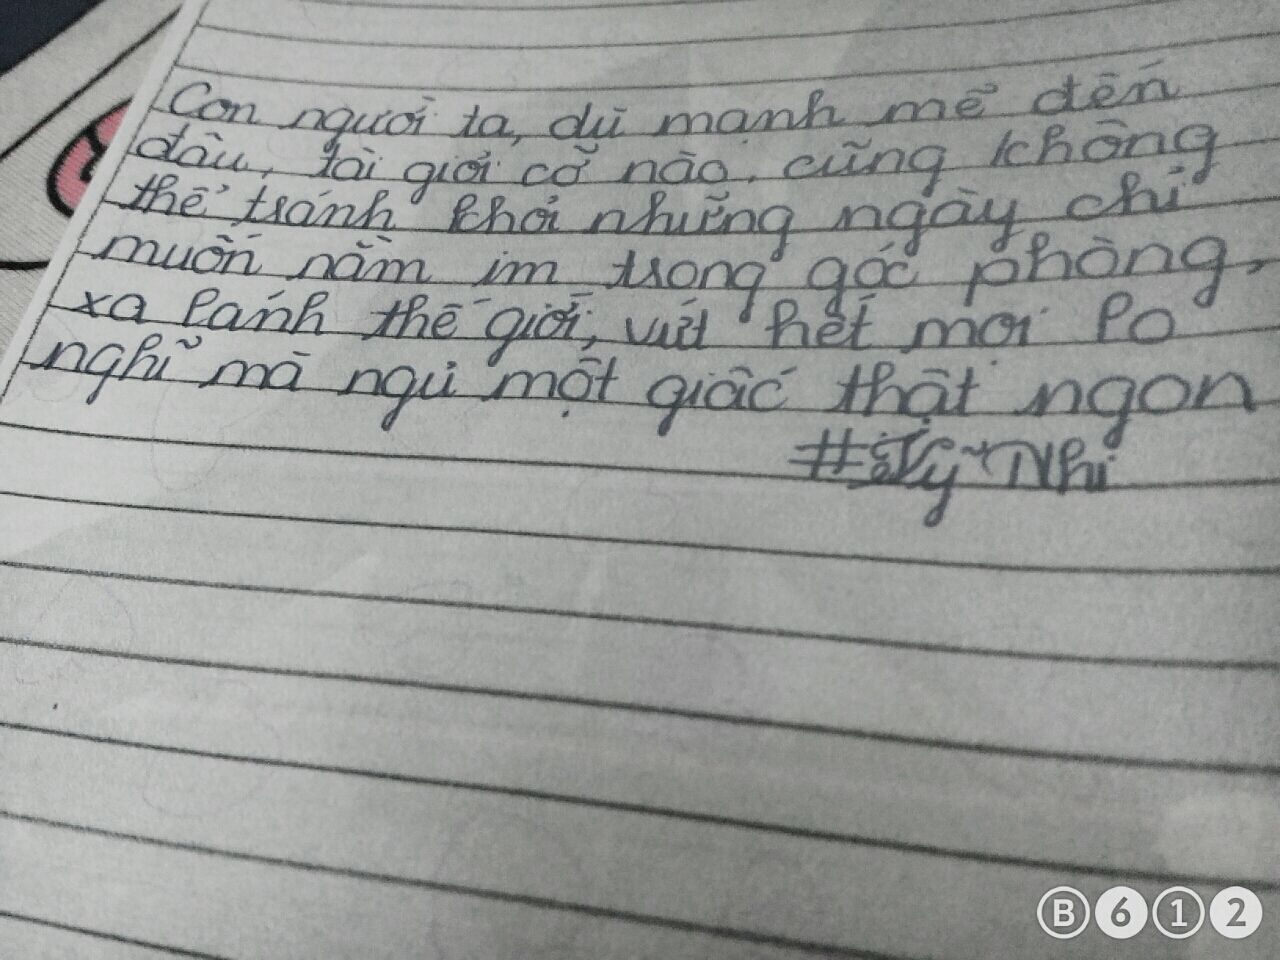 Con người ta, dù mạnh mẽ đến
đâu, tài giỏi cỡ nào, cũng không
thể tránh khỏi những ngày chỉ
muốn nằm im trong góc phòng,
xa lánh thế giới, vứt hết mọi lo
nghĩ mà ngủ một giấc thật ngon
Vy Nhi
B612